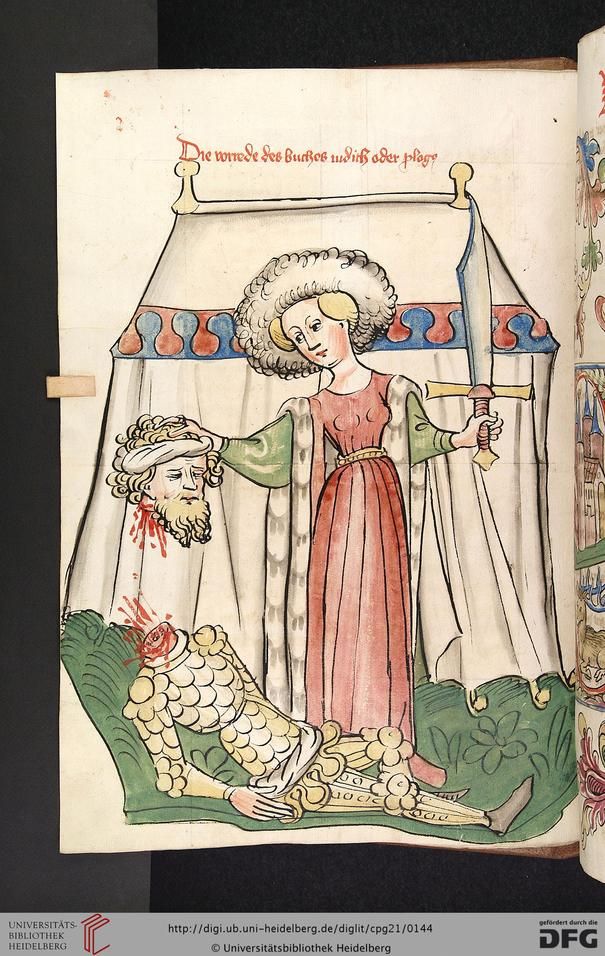 Die vorrede des buches iudich oder ploge
UNIVERSITÄTS-
BIBLIOTHEK
HEIDELBERG
http://digi.ub.uni-heidelberg.de/diglit/cpg21/0144
© Universitätsbibliothek Heidelberg
gefördert durch die
DFG